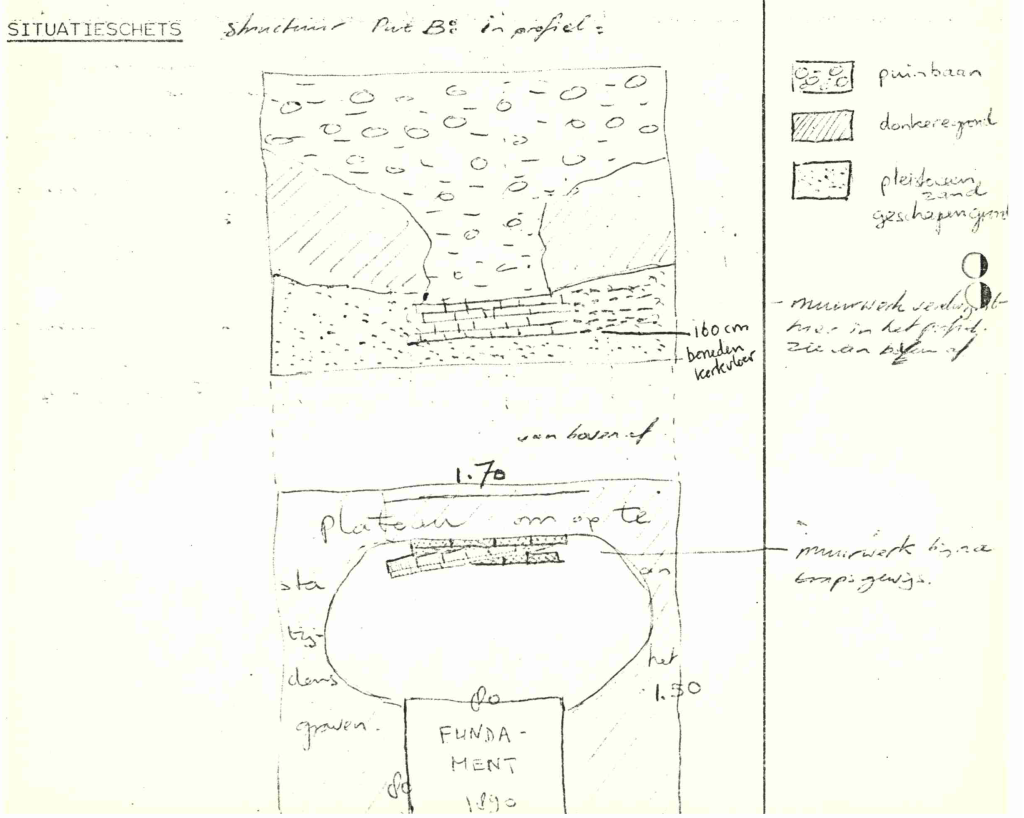 SITUATIESCHETS structuur Put B: in profiel:
puinbaan
donkere grond
pleistoceen
zand
geschapen grond
muurwerk
hier in het
zie van boven af
160 cm
beneden
kerkvloer
van boven af
1.70
plateau om op te
staan
tij-
dens
het
graven.
1.50
muurwerk bijna
trapsgewijs.
80
FUNDA-
MENT
1890
80